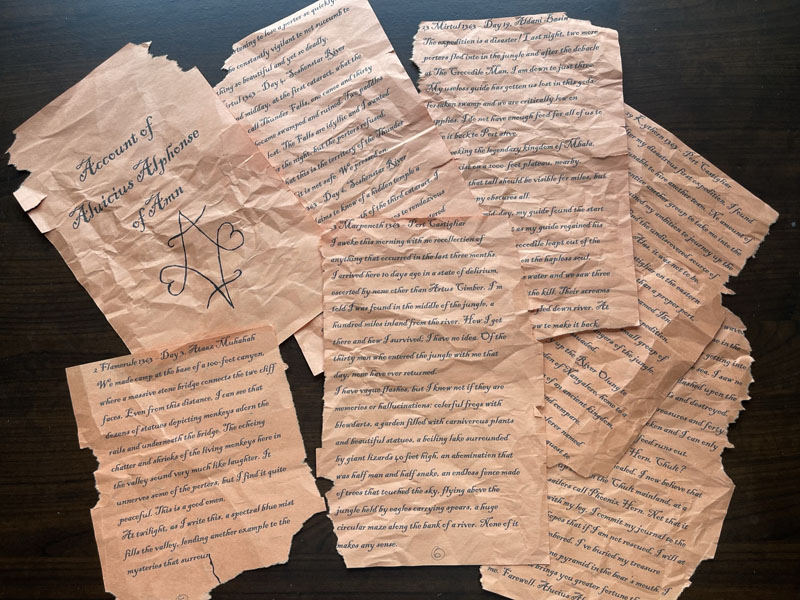 Account of
Aluicius Alphonse
of Amn
to lose a porter so quickly
be constantly vigilant to not succumb to
so beautiful and yet so deadly.
1363 - Day 4, Soshenstar River
midday, at the first cataract, what the
call Thunder Falls, one canoe and thirty
became swamped and ruined. Two paddles
lost. The Falls are idyllic and I wanted
the night, but the porters refused.
that this is the territory of the Thunder
it is not safe. We pressed on.
1363 - Day 5, Soshenstar River
claims to know of a hidden temple
of the third cataract. I
to rendezvous
13 Mirtul 1363 - Day 19, Aldani Basin
The expedition is a disaster! Last night, two more
porters fled into the jungle and after the debacle
at The Crocodile Man, I am down to just three.
My useless guide has gotten us lost in this gods
forsaken swamp and we are critically low on
supplies. I do not have enough food for all of us to
it back to Port alive.
seeking the legendary kingdom of Mbala.
on a 1000-foot plateau, nearby.
that tall should be visible for miles, but
my obscures all.
day, my guide found the start
as my guide regained his
crocodile leapt out of the
on the hapless soul.
water and we saw three
the kill. Their screams
down river. At
to make it back
1363 - Port Castigliar
my disastrous first expedition, I found
unable to hire another team. No amount of
another group to take me into the
my ambition to journey up the
and undiscovered source of
it was not to be.
on the eastern
than a proper port.
small group of
of the jungle.
the River Olung
of Mezro
ancient kingdom.
3 Marpenoth 1363 - Port Castigliar
I awoke this morning with no recollection of
anything that occurred in the last three months.
I arrived here 10 days ago in a state of delirium,
escorted by none other than Artus Cimber. I'm
told I was found in the middle of the jungle, a
hundred miles inland from the river. How I got
there and how I survived, I have no idea. Of the
thirty men who entered the jungle with me that
day, none have ever returned.
I have vague flashes, but I know not if they are
memories or hallucinations: colorful frogs with
blowdarts, a garden filled with carnivorous plants
and beautiful statues, a boiling lake surrounded
by giant lizards 40 feet high, an abomination that
was half man and half snake, an endless fence made
of trees that touched the sky, flying above the
jungle held by eagles carrying spears, a huge
circular maze along the bank of a river. None of it
makes any sense.
6
2 Flamerule 1363 - Day 3, Ataaz Muhahah
We made camp at the base of a 100-foot canyon,
where a massive stone bridge connects the two cliff
faces. Even from this distance, I can see that
dozens of statues depicting monkeys adorn the
rails and underneath the bridge. The echoing
chatter and shrieks of the living monkeys here in
the valley sound very much like laughter. It
unnerves some of the porters, but I find it quite
peaceful. This is a good omen.
At twilight, as I write this, a spectral blue mist
fills the valley, lending another example to the
mysteries that surroun
getting into
I saw
dashed upon the
and destroyed.
treasures and forty
and I can only
food runs out.
Horn, Chult?
I now believe that
the Chult mainland, at a
sailors call Phoenix Horn. Not that it
with my leg. I commit my journal to the
hopes that if I am not rescued, I will at
I've buried my treasure
pyramid in the bear's mouth. I
brings you greater fortune
me. Farewell, Aluicius